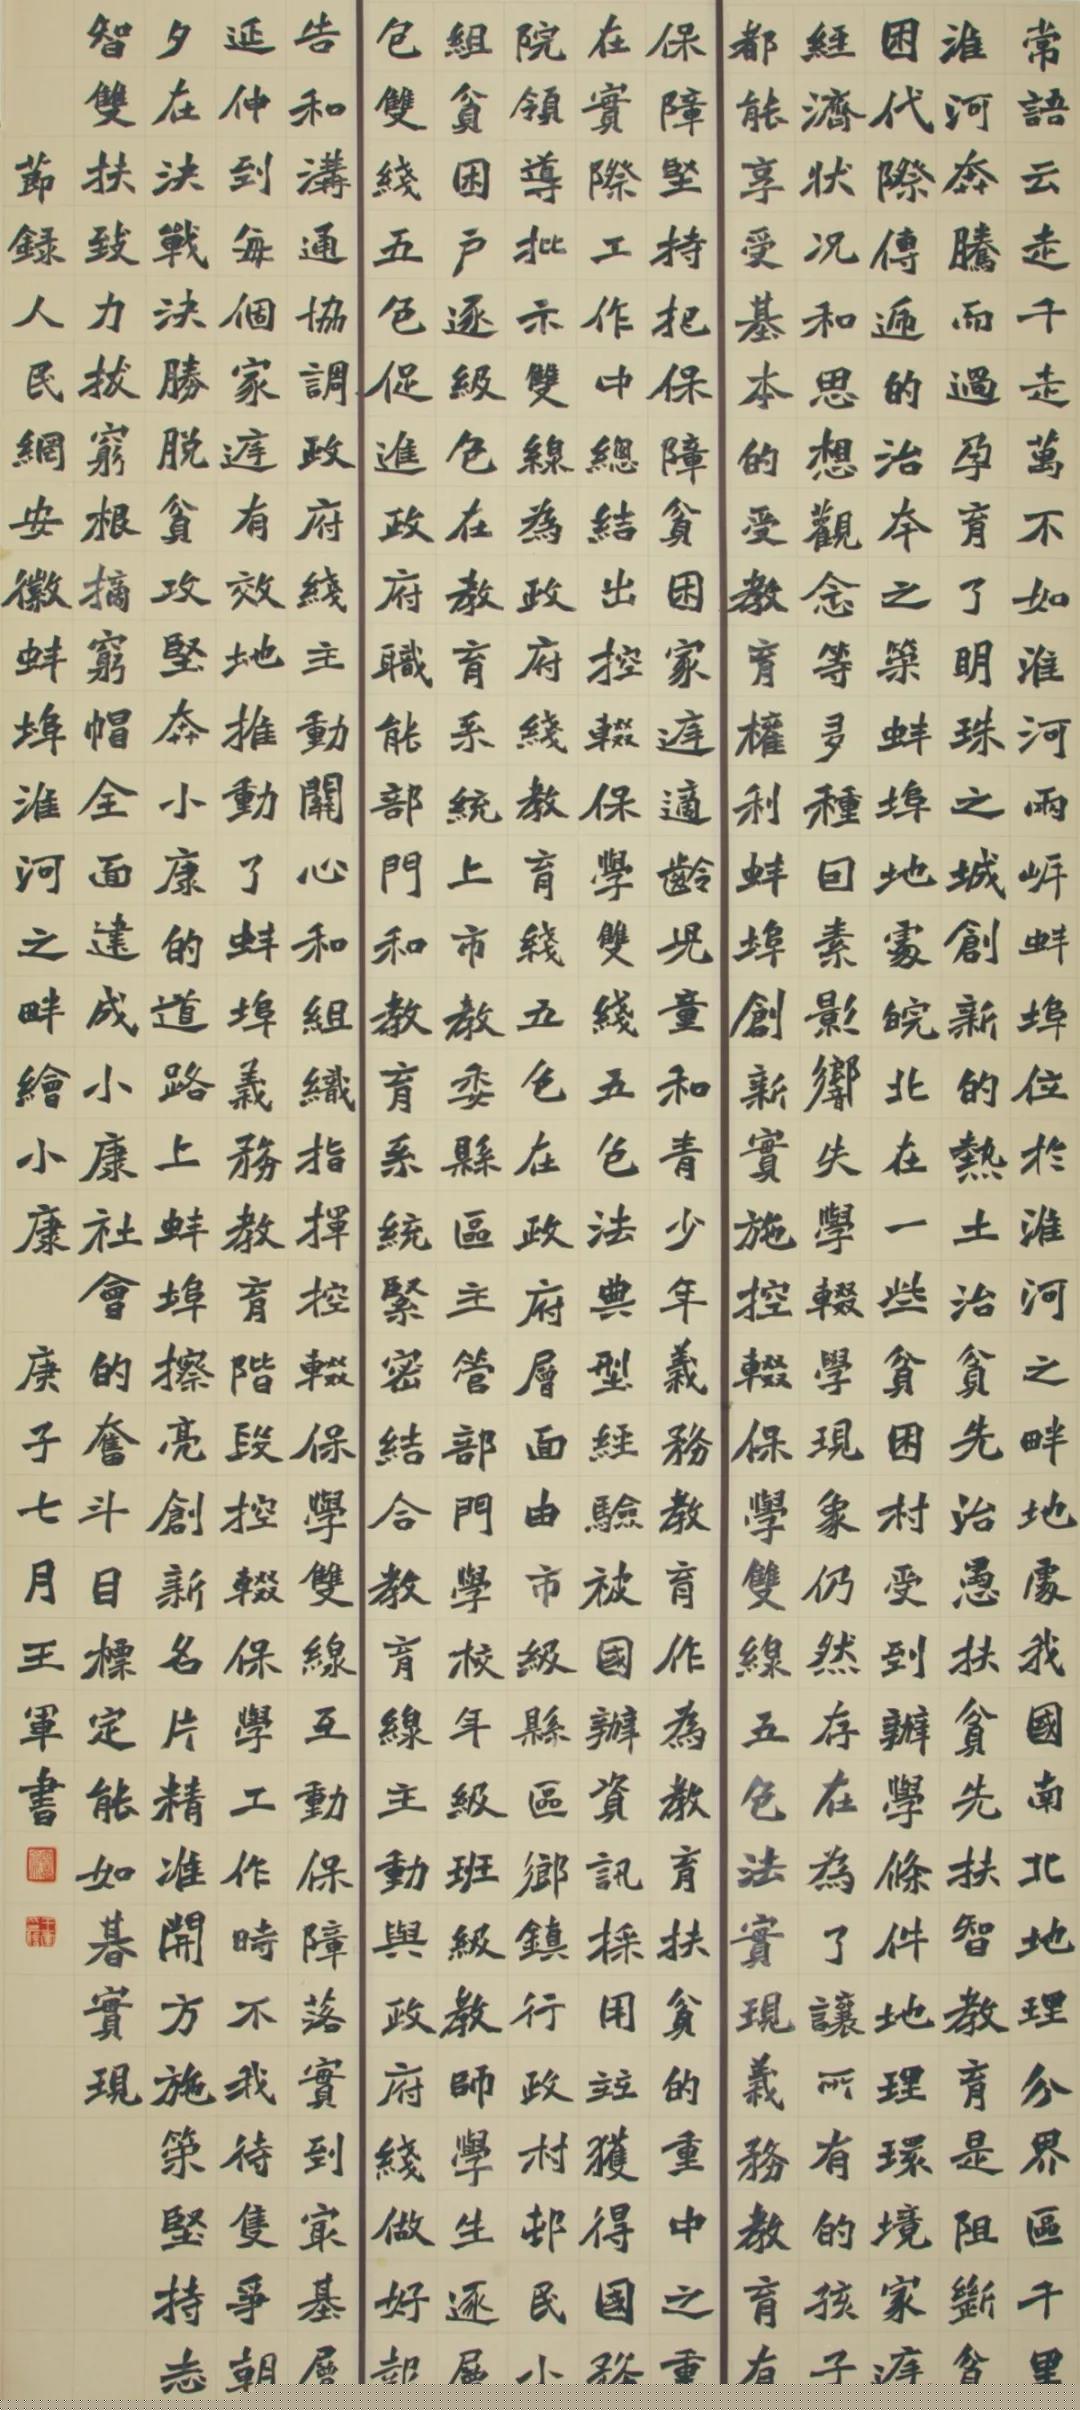 常語云走千走萬不如淮河兩岸蚌埠位於淮河之畔地處我國南北地理分界區千里
淮河奔騰而過孕育了明珠之城創新的熱土治貧先治愚扶貧先扶智教育是阻斷貧
困代際傳遞的治本之策蚌埠地處皖北在一些貧困村受到辦學條件地理環境家庭
經濟狀況和思想觀念等多種因素影響失學輟學現象仍然存在為了讓所有的孩子
都能享受基本的受教育權利蚌埠創新實施控輟保學雙線五包法實現義務教育有
保障堅持把保障貧困家庭適齡兒童和青少年義務教育作為教育扶貧的重中之重
在實際工作中總結出控輟保學雙綫五包法典型經驗被國辦資訊採用並獲得國務
院領導批示雙線為政府綫教育綫五包在政府層面由市級縣區鄉鎮行政村邨民小
組貧困戶逐級包在教育系統上市教委縣區主管部門學校年級班級教師學生逐層
包雙綫五包促進政府職能部門和教育系統緊密結合教育線主動與政府綫做好部
告和溝通協調政府綫主動關心和組織指揮控輟保學雙線互動保障落實到家基層
延伸到每個家庭有效地推動了蚌埠義務教育階段控輟保學工作時不我待隻爭朝
夕在決戰決勝脫貧攻堅奔小康的道路上蚌埠擦亮創新名片精准開方施策堅持志
智雙扶致力拔窮根摘窮帽全面建成小康社會的奮斗目標定能如碁實現
節録人民網安徽蚌埠淮河之畔繪小康 庚子七月王軍書